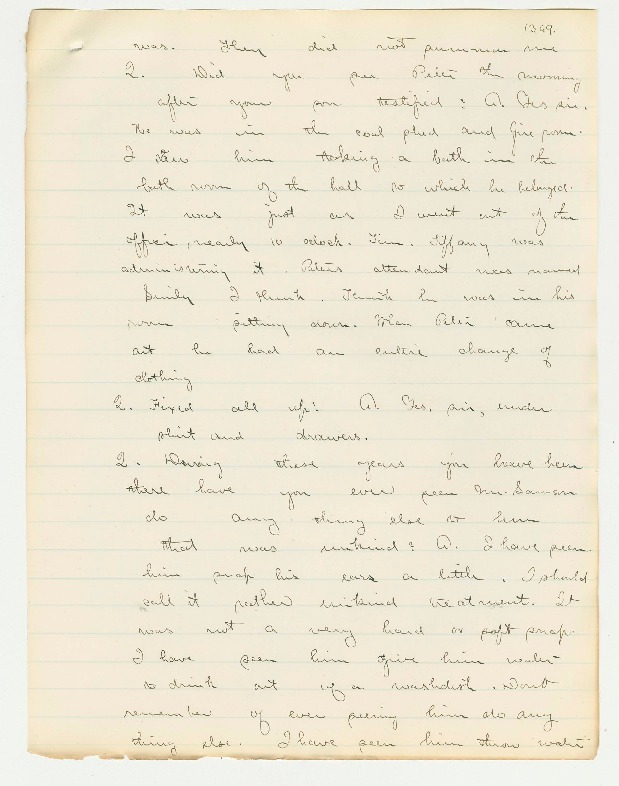 1369.
was. They did not summon me
Q. Did you see Peter the morning
after your son testified? A. Yes sir.
He was in the coal shed and fire room.
I saw him taking a bath in the
bath room of the hall to which he belonged.
It was just as I went out of the
office, nearly 10 oclock. Tiffany was
administering it. Peters attendant was named
I think. Think he was in his
room sitting down. When Peter came
out he had an entire change of
clothing
Q. Fixed all up? A. Yes, sir, under
shirt and drawers.
Q. During these years you have been
there have you ever seen Mr. Samson
do any thing else to him
that was unkind? A. I have seen
him snap his ears a little. I should
call it rather unkind treatment. It
was not a very hard or soft snap.
I have seen him give him water
to drink out of a washdish. Dont
remember of ever seeing him do any
thing else. I have seen him throw water